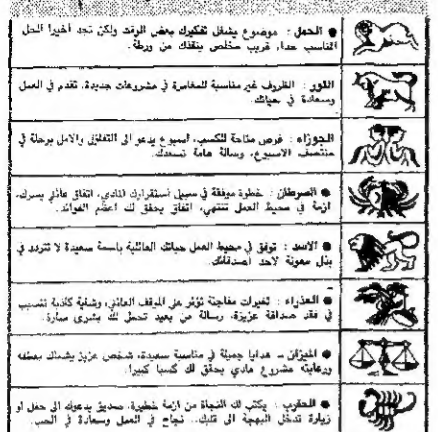 ● الحمل : موضوع يشغل تفكيرك بعض الوقت ولكن تجد أخيرا الحل
المناسب جدا، قريب مخلص ينقذك من ورطة.
الثور : الظروف غير مناسبة للمغامرة في مشروعات جديدة، تقدم في العمل
وسعادة في حياتك.
الجوزاء : فرص متاحة للكسب، اسبوع يدعو الى التفاؤل والامل برحلة في
منتصف الاسبوع، ورسالة هامة تسعدك.
● السرطان : خطوة موفقة في سبيل استقرارك المادي، اتفاق عائلي يسرك،
ازمة في محيط العمل تنتهي، اتفاق يحقق لك اعظم الفوائد.
● الاسد : توفق في محيط العمل حياتك العائلية باسمة سعيدة لا تتردد في
بذل معونة لاحد اصدقائك.
● العذراء : تغيرات مفاجئة تؤثر على الموقف العائلي، وشاية كاذبة تتسبب
في فقد صداقة عزيزة، رسالة من بعيد تحمل لك بشرى سارة.
● الميزان ـ هدايا جميلة في مناسبة سعيدة، شخص عزيز يشملك بعطفه
ورعايته مشروع مادي يحقق لك كسبا كبيرا.
● العقرب : يكتب لك النجاة من ازمة خطيرة، صديق يدعوك الى حفل او
زيارة تدخل البهجة الى قلبك.. نجاح في العمل وسعادة في الحب.